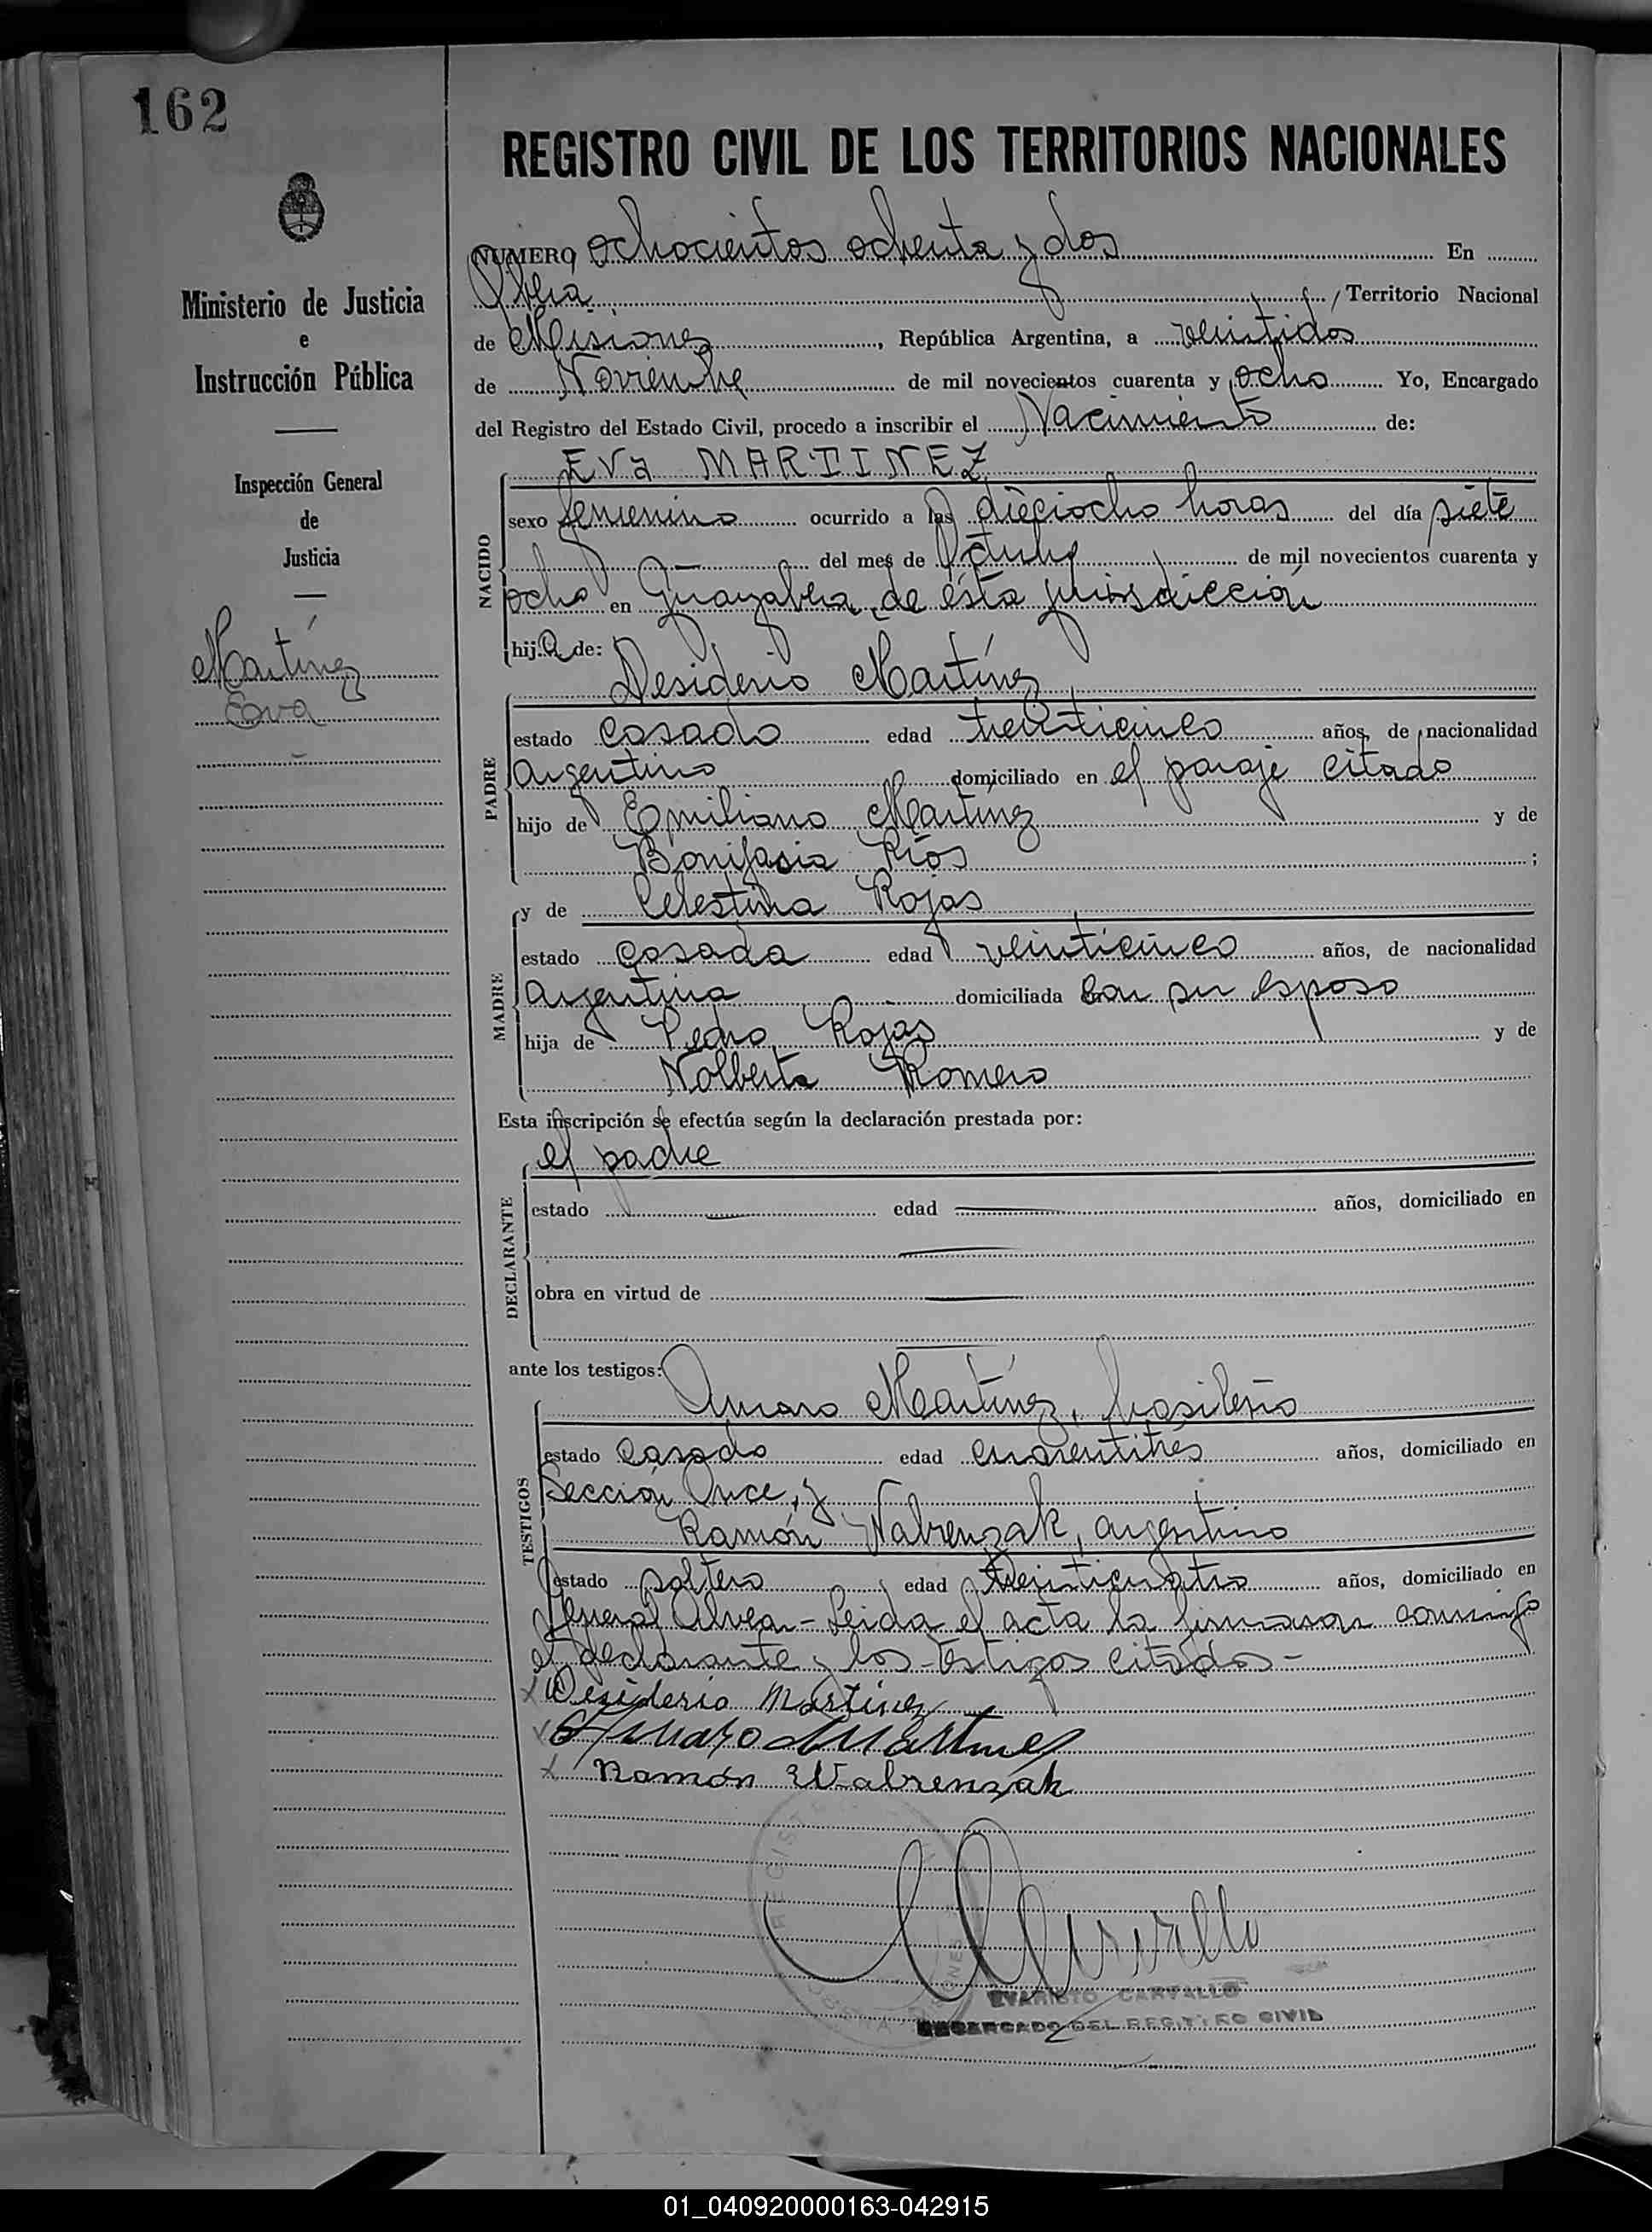 162
REGISTRO CIVIL DE LOS TERRITORIOS NACIONALES
Ministerio de Justicia
e
Instrucción Pública
Inspección General
de
Justicia
Martínez
Eva
NUMERO ochocientos ochenta y dos En
Oberá, Territorio Nacional
de Misiones, República Argentina, a veintidos
de Noviembre de mil novecientos cuarenta y ocho Yo, Encargado
del Registro del Estado Civil, procedo a inscribir el Nacimiento de:
Eva MARTINEZ
NACIDO
sexo femenino ocurrido a las dieciocho horas del día siete
del mes de Octubre de mil novecientos cuarenta y
ocho en Guayabera, de ésta jurisdicción
hija de:
Desiderio Martínez
PADRE
estado casado edad treinticinco años, de nacionalidad
argentino domiciliado en el paraje citado
hijo de Emiliano Martínez y de
Bonifasia Ríos ;
y de Celestina Rojas
MADRE
estado casada edad veinticinco años, de nacionalidad
argentina domiciliada con su esposo
hija de Pedro Rojas y de
Nolberta Romero
Esta inscripción se efectúa según la declaración prestada por:
el padre
DECLARANTE
estado edad años, domiciliado en
obra en virtud de
ante los testigos:
Amaro Martínez, brasileño
TESTIGOS
estado casado edad cuarentitrés años, domiciliado en
Sección Once, y
Ramón Wabrenzak, argentino
estado soltero edad treinticuatro años, domiciliado en
General Alvear - Leida el acta la firmaron conmigo
el declarante y los testigos citados -
Desiderio Martinez
Amaro Martinez
Ramón Wabrenzak
EVARISTO CARVALLO
ENCARGADO DEL REGISTRO CIVIL
01_040920000163-042915